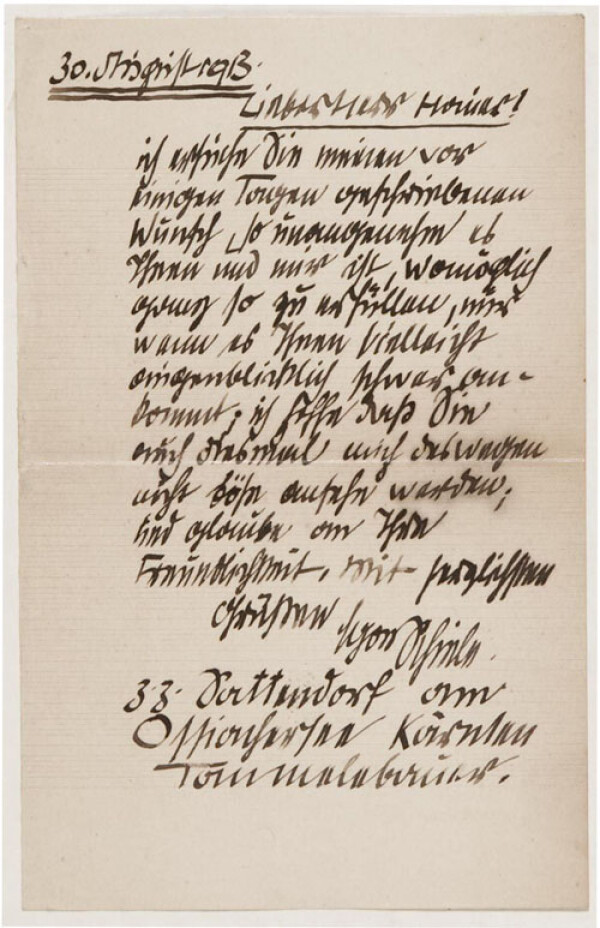 30. August 1913.
Lieber Herr Hauer!
ich ersuche Sie meinen vor
einigen Tagen geschriebenen
Wunsch, so unangenehm es
Ihnen und mir ist, womöglich
ganz so zu erfüllen, nur
wenn es Ihnen vielleicht
augenblicklich schwer an-
kommt; ich hoffe daß Sie
auch diesmal mich deswegen
nicht böse ansehn werden;
und glaube an Ihre
Freundlichkeit. Mit herzlichsten
Grüßen Egon Schiele.
z. z. Sattendorf am
Ossiachersee Kärnten